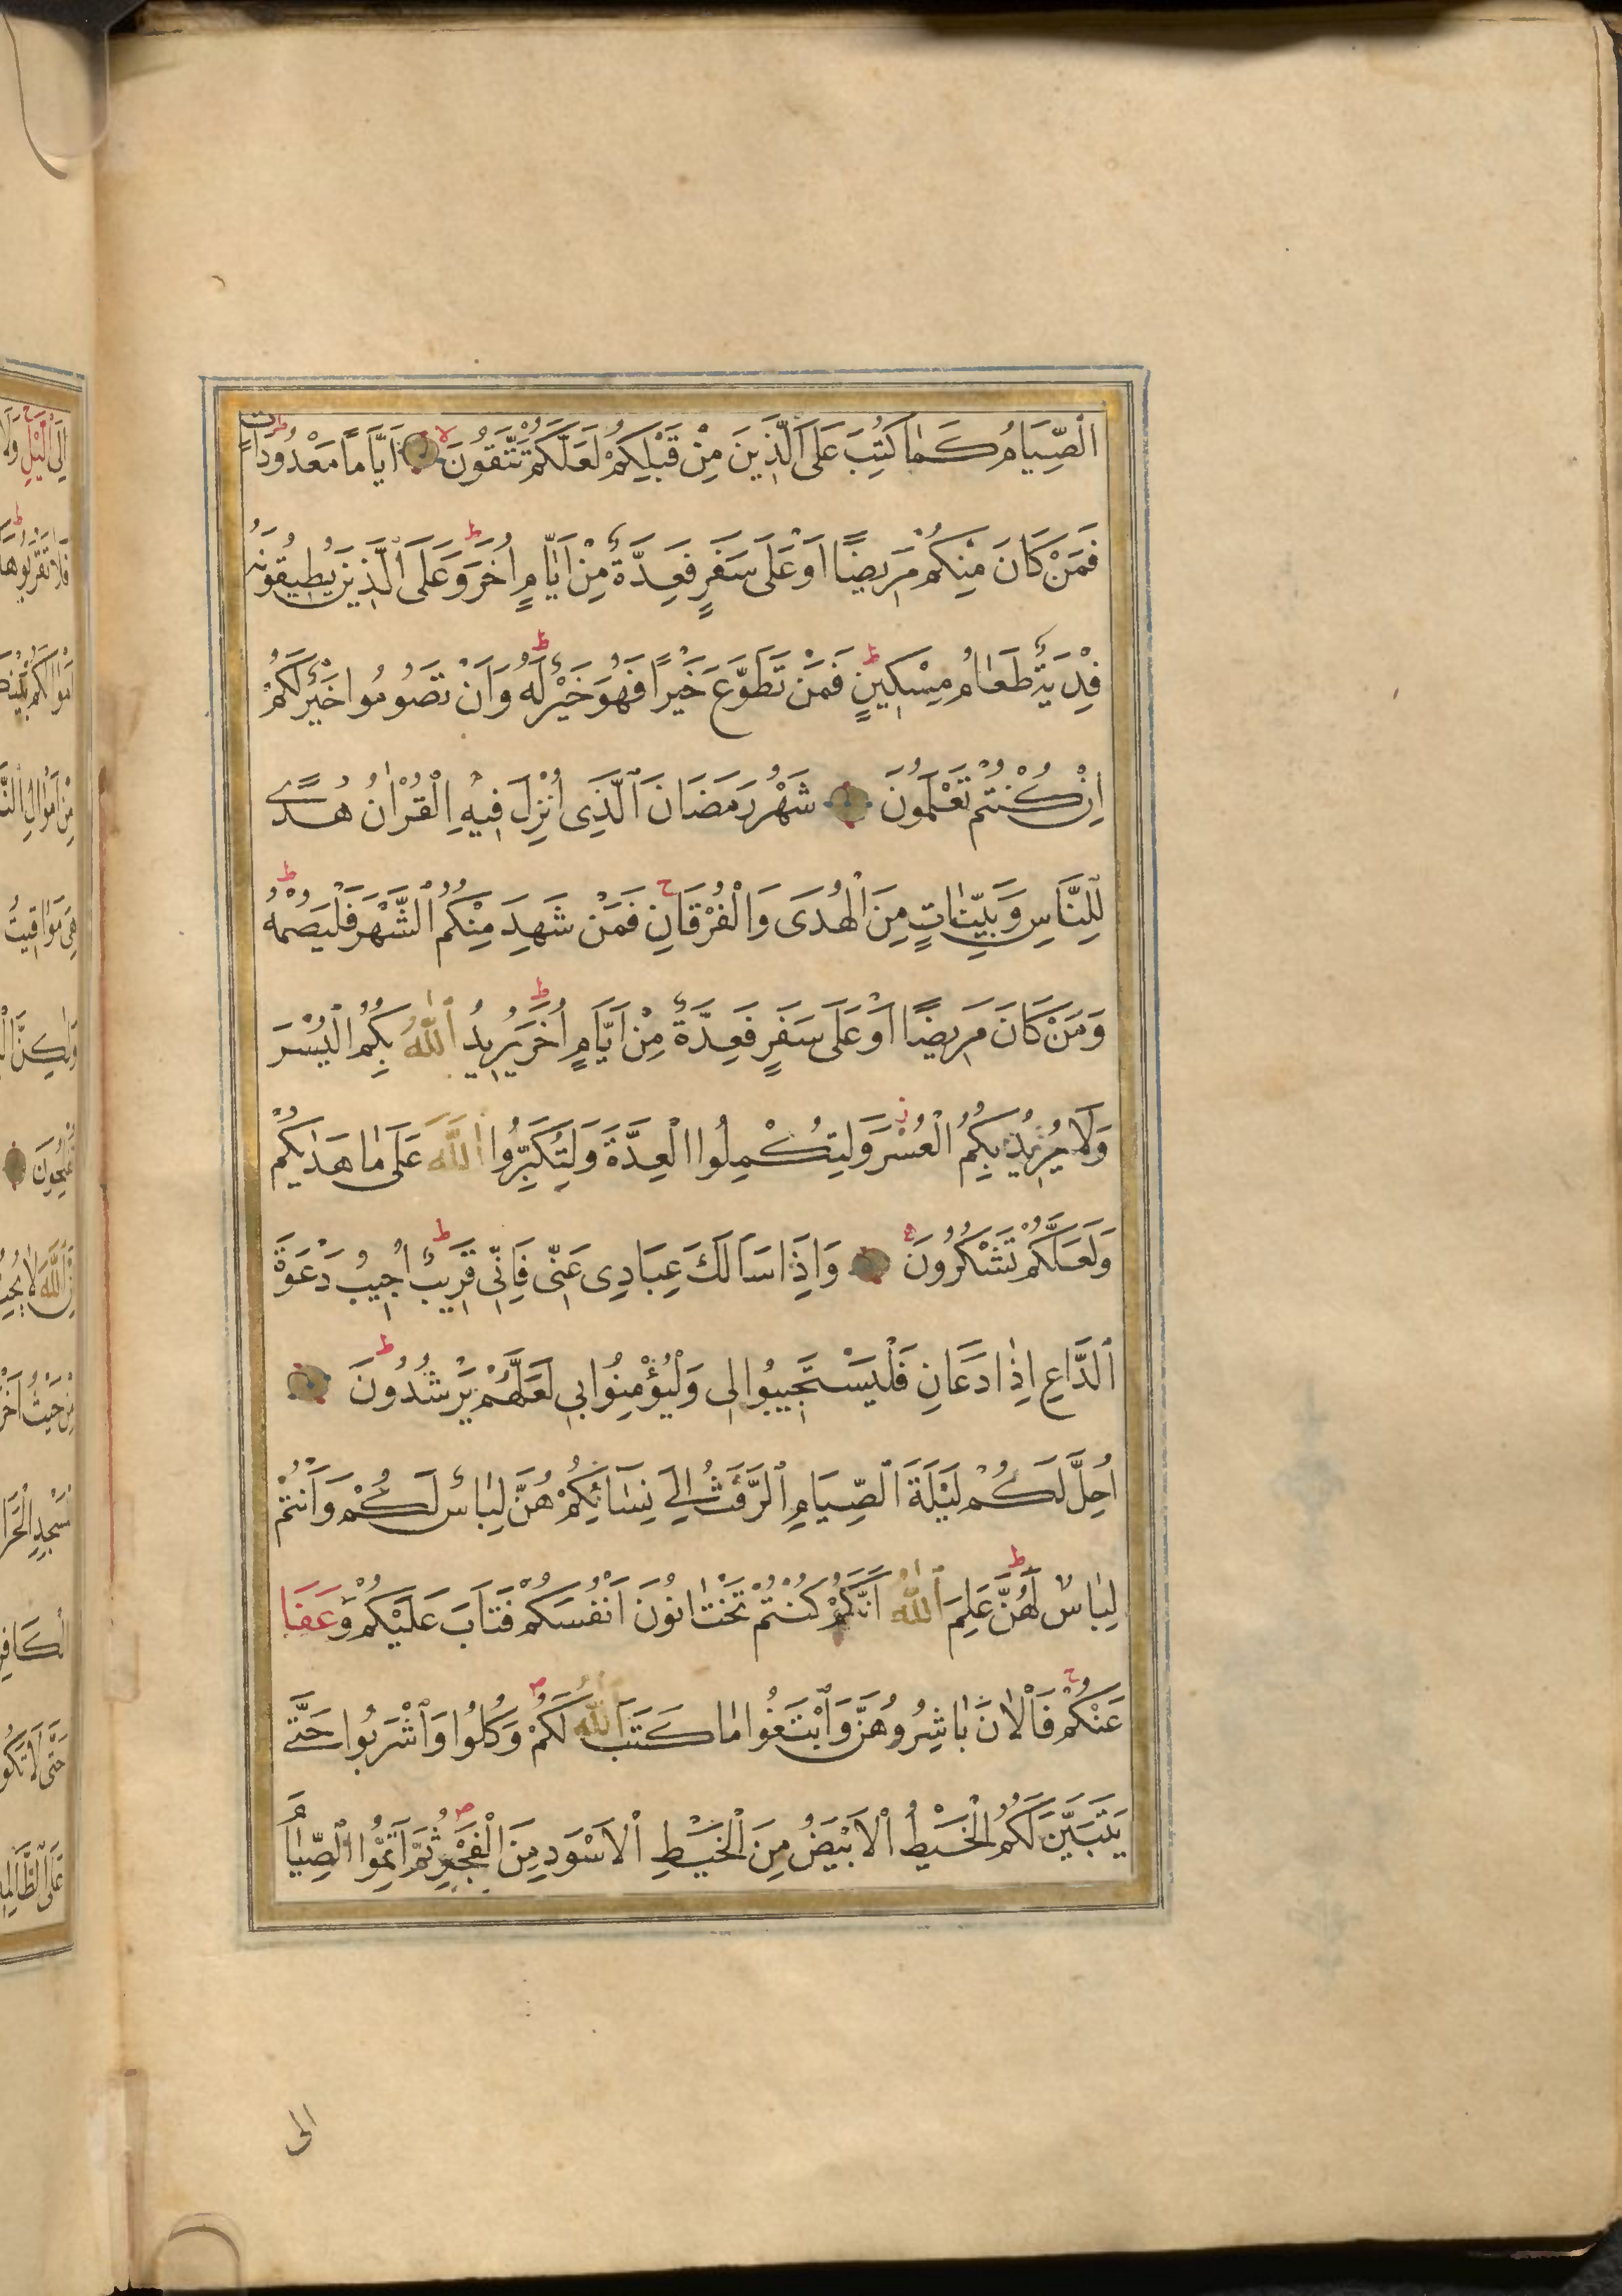 اَلصِّيَامُ كَمَا كُتِبَ عَلَى الَّذِينَ مِنْ قَبْلِكُمْ لَعَلَّكُمْ تَتَّقُونَ اَيَّامًا مَعْدُودَاتٍ
فَمَنْ كَانَ مِنْكُمْ مَرِيضًا اَوْ عَلَى سَفَرٍ فَعِدَّةٌ مِنْ اَيَّامٍ اُخَرَ وَعَلَى الَّذِينَ يُطِيقُونَهُ
فِدْيَةٌ طَعَامُ مِسْكِينٍ فَمَنْ تَطَوَّعَ خَيْرًا فَهُوَ خَيْرٌ لَهُ وَاَنْ تَصُومُوا خَيْرٌ لَكُمْ
اِنْ كُنْتُمْ تَعْلَمُونَ شَهْرُ رَمَضَانَ الَّذِى اُنْزِلَ فِيهِ الْقُرْاٰنُ هُدًى
لِلنَّاسِ وَبَيِّنَاتٍ مِنَ الْهُدَى وَالْفُرْقَانِ فَمَنْ شَهِدَ مِنْكُمُ الشَّهْرَ فَلْيَصُمْهُ
وَمَنْ كَانَ مَرِيضًا اَوْ عَلَى سَفَرٍ فَعِدَّةٌ مِنْ اَيَّامٍ اُخَرَ يُرِيدُ اللّٰهُ بِكُمُ الْيُسْرَ
وَلَا يُرِيدُ بِكُمُ الْعُسْرَ وَلِتُكْمِلُوا الْعِدَّةَ وَلِتُكَبِّرُوا اللّٰهَ عَلَى مَا هَدٰيكُمْ
وَلَعَلَّكُمْ تَشْكُرُونَ وَاِذَا سَاَلَكَ عِبَادِى عَنِّى فَاِنِّى قَرِيبٌ اُجِيبُ دَعْوَةَ
الدَّاعِ اِذَا دَعَانِ فَلْيَسْتَجِيبُوا لِى وَلْيُؤْمِنُوا بِى لَعَلَّهُمْ يَرْشُدُونَ
اُحِلَّ لَكُمْ لَيْلَةَ الصِّيَامِ الرَّفَثُ اِلَى نِسَائِكُمْ هُنَّ لِبَاسٌ لَكُمْ وَاَنْتُمْ
لِبَاسٌ لَهُنَّ عَلِمَ اللّٰهُ اَنَّكُمْ كُنْتُمْ تَخْتَانُونَ اَنْفُسَكُمْ فَتَابَ عَلَيْكُمْ وَعَفَا
عَنْكُمْ فَالْاٰنَ بَاشِرُوهُنَّ وَابْتَغُوا مَا كَتَبَ اللّٰهُ لَكُمْ وَكُلُوا وَاشْرَبُوا حَتَّى
يَتَبَيَّنَ لَكُمُ الْخَيْطُ الْاَبْيَضُ مِنَ الْخَيْطِ الْاَسْوَدِ مِنَ الْفَجْرِ ثُمَّ اَتِمُّوا الصِّيَامَ
الى